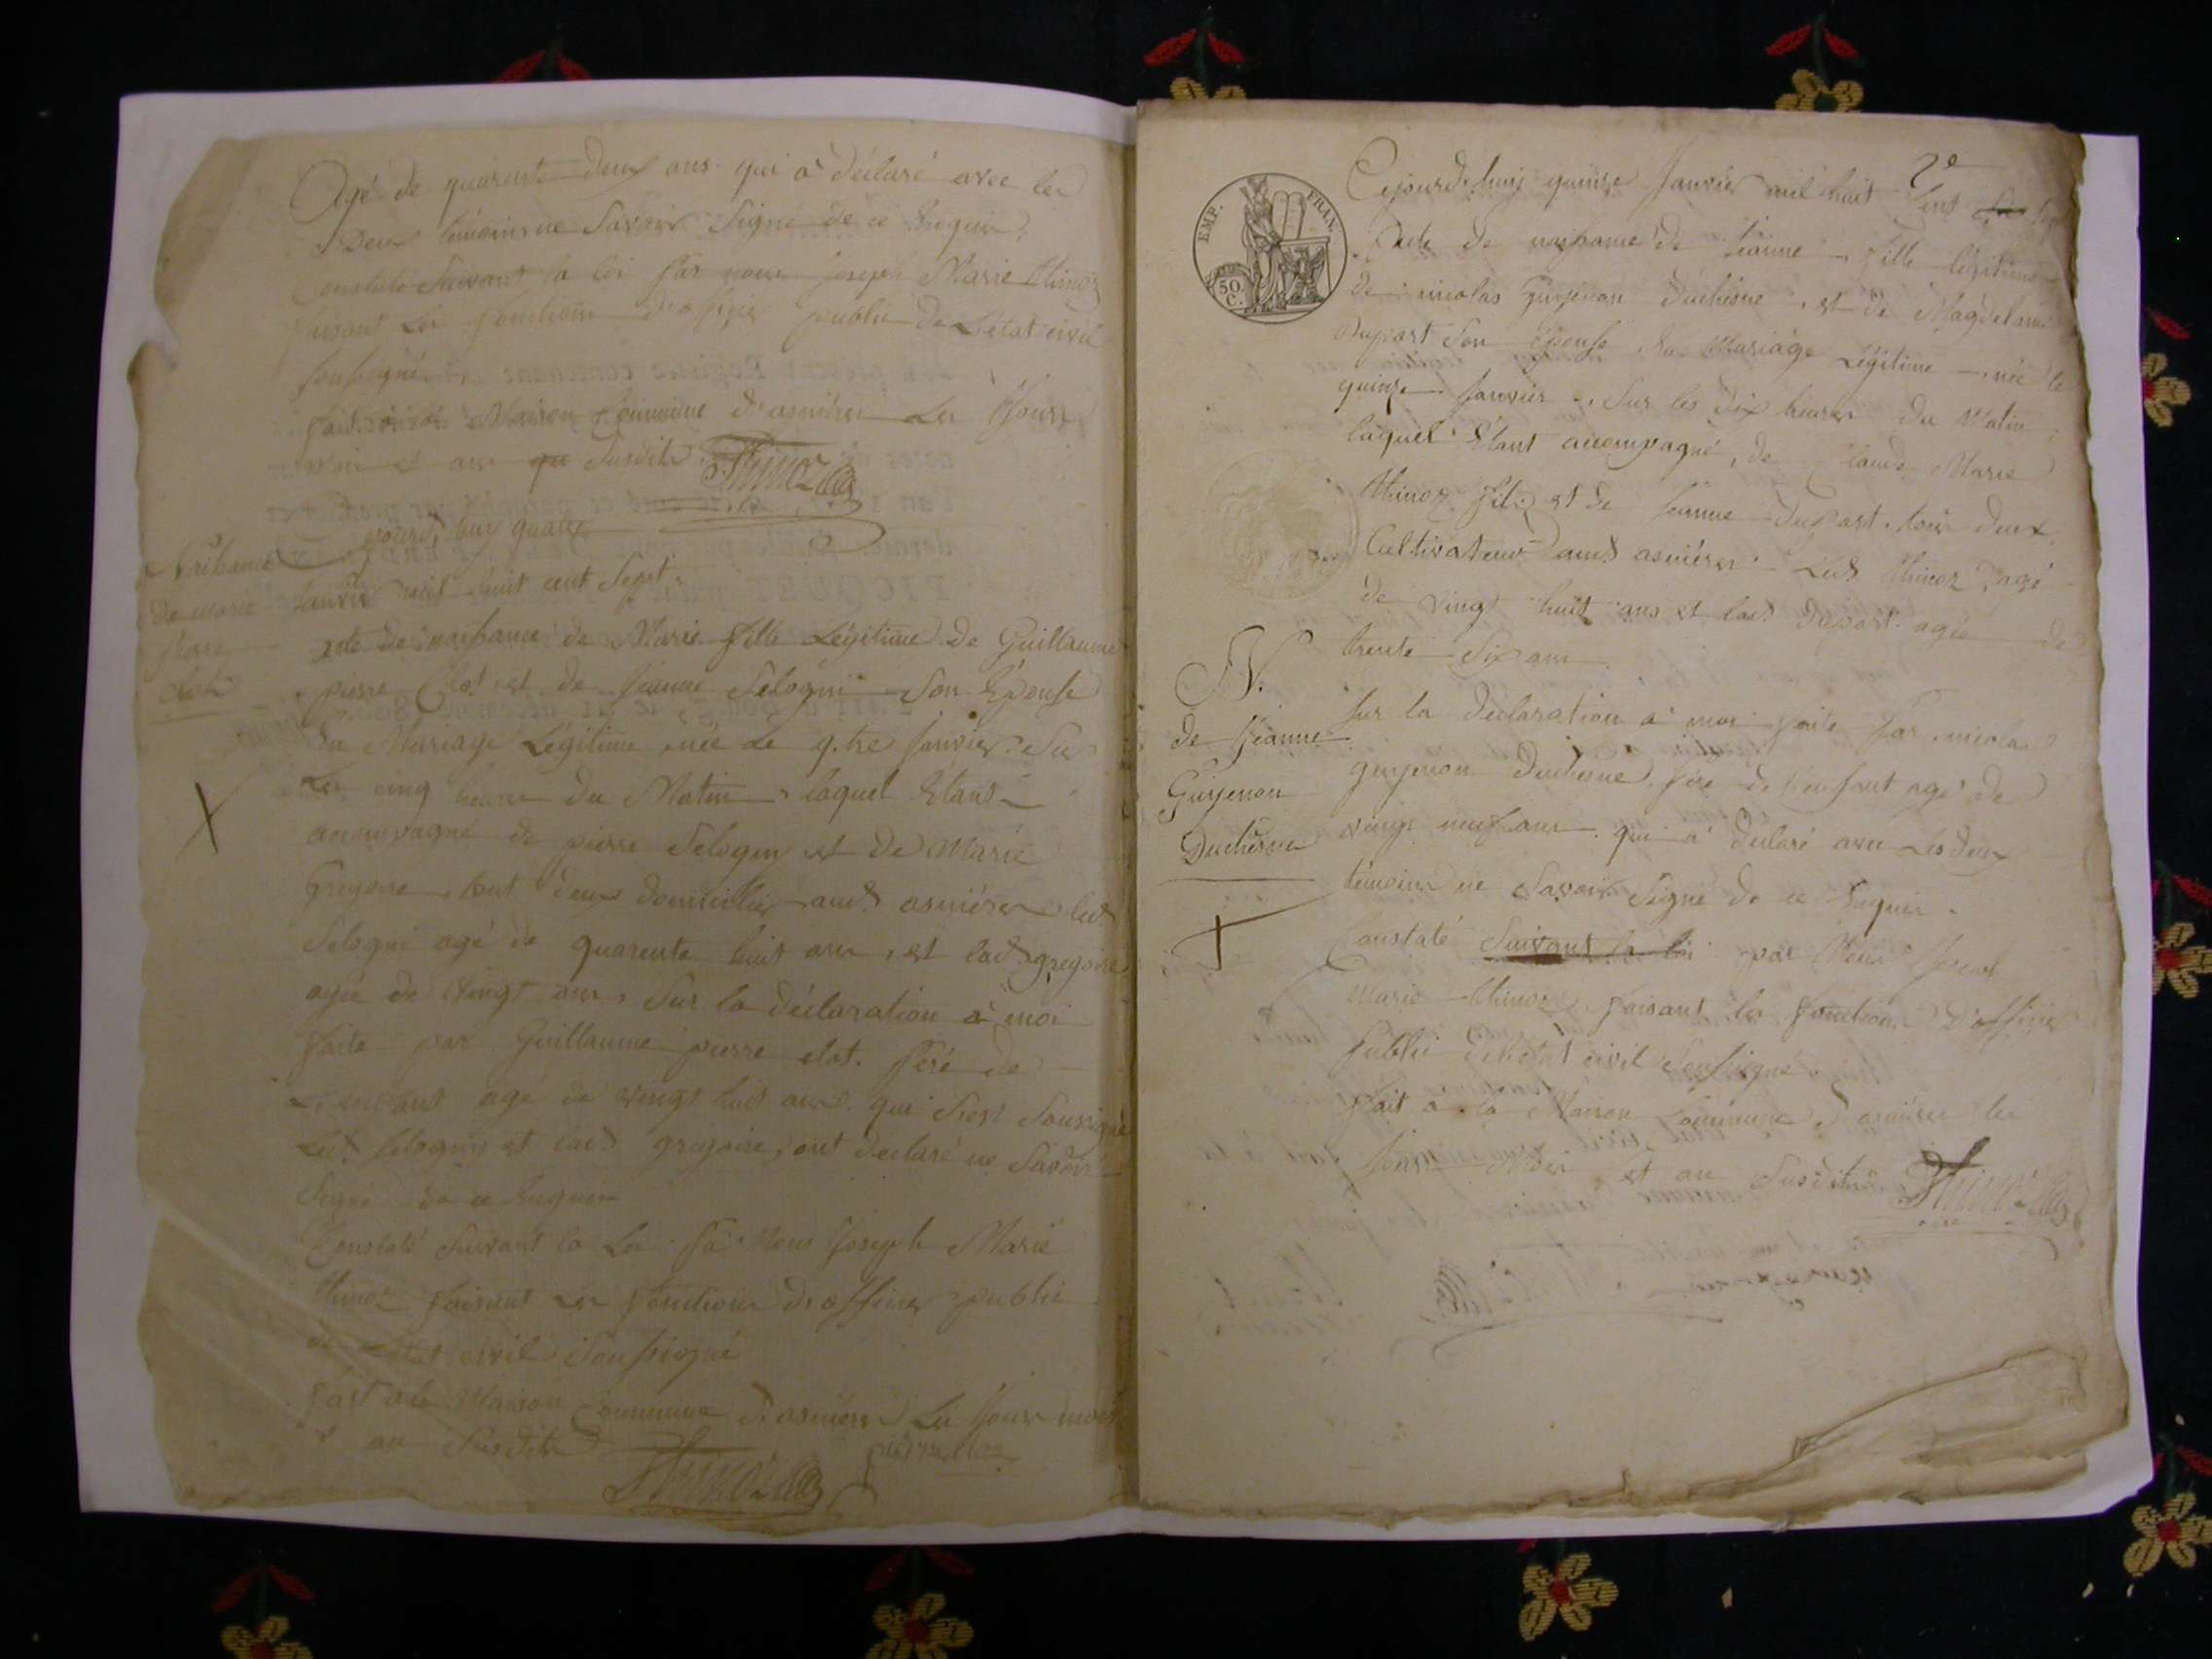 Agé de quarente deux ans qui a déclaré avec les
Deux témoins ne Savoir Signé de ce Enquis.
Constaté Suivant la loi par nous Joseph Marie thinoz
faisant les fonctions d'officier public de L'état civil
soussigné
fait à la Maison Commune d'asnières Les Jours
mois et an que Susdits Thinoz
Naissance
de marie
pierre
clot
jourd'hui quatre
Janvier mil huit cent Sept,
acte de naissance de Marie fille Légitime de Guillaume
pierre Clot, et de jeanne Sélogni Son Epouse
En Mariage Légitime née Le q.tre Janvier Sur
Les cinq heures du Matin, laquel Etant
accompagné de pierre Selogny et de Marie
Gregoire, tout deux domiciliés aud.t asnières led.t
Selogni agé de quarente huit ans, et lad.t gregoire
agée de vingt ans, Sur la déclaration à moi
faite par Guillaume pierre clot. Peré de
L'enfant agé de vingt huit ans qui s'est Soussigné
Led.t Selogni et lad.t gregoire, ont declaré ne Savoir
Signé de ce Enquis
Constaté Suivant la Loi Par Nous Joseph Marie
thinoz faisant Les fonctions d'officier public
de L'état civil Soussigné
fait a la Maison Commune d'asnières Les Jour mois
et an Susdits
Thinoz
EMP. FRAN.
50.
C.
2e
Cejourd'huis quinze Janvier mil huit Cent Sept
Acte de naissance de jeanne, fille légitime
de nicolas Guyenon duchesne, et de Magdelaine
Dupart Son Epouse En Mariage Légitime, née le
quinze Janvier, Sur les dix heures du Matin,
laquel Etant accompagné, de Claude Marie
thinoz fils et de jeanne dupart, tous deux
Cultivateur aud.t asnières Led.t thinoz agé
de vingt huit ans et lad.t dupart agée de
trente Six ans
N.
de Jeanne
Guyenon
Duchesne
Sur la declaration a moi faite par nicolas
guyenon duchesne, pére de l'enfant agé de
vingt neuf ans qui a declaré avec Les deux
témoins ne Savoir Signé de ce Enquis.
Constaté Suivant la loi par Nous Joseph
Marie thinoz, faisant les fonctions d'officier
public de l'état civil Soussigné.
fait a la Maison Commune d'asnières les
Jours Mois et an Susdits Thinoz